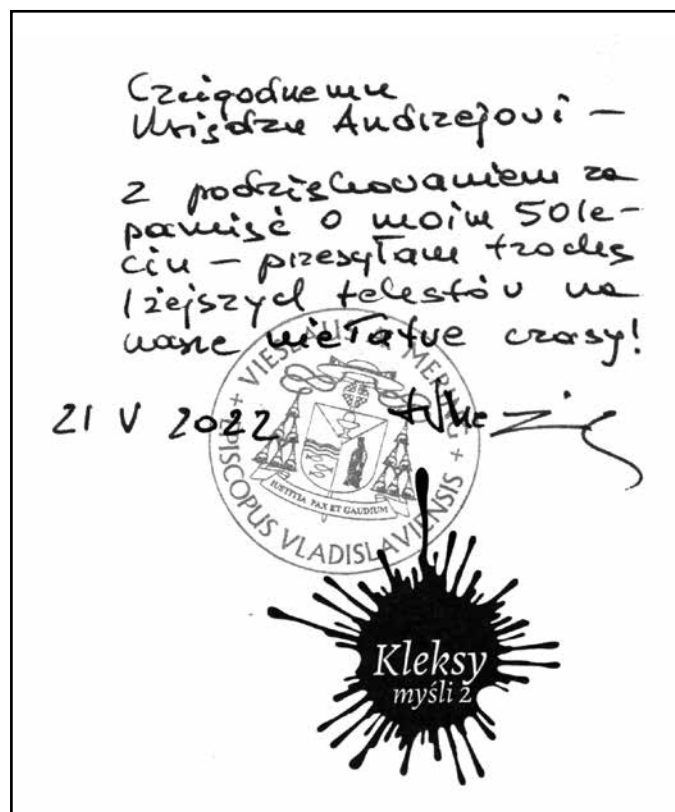 Czcigodnemu
Księdzu Andrzejowi –
z podziękowaniem za
pamięć o moim 50le-
ciu – przesyłam trochę
lżejszych tekstów na
nasze niełatwe czasy!
21 V 2022
VIESLAUS A. MERING
EPISCOPUS VLADISLAVIENSIS
IUSTITIA PAX ET GAUDIUM
Kleksy
myśli 2